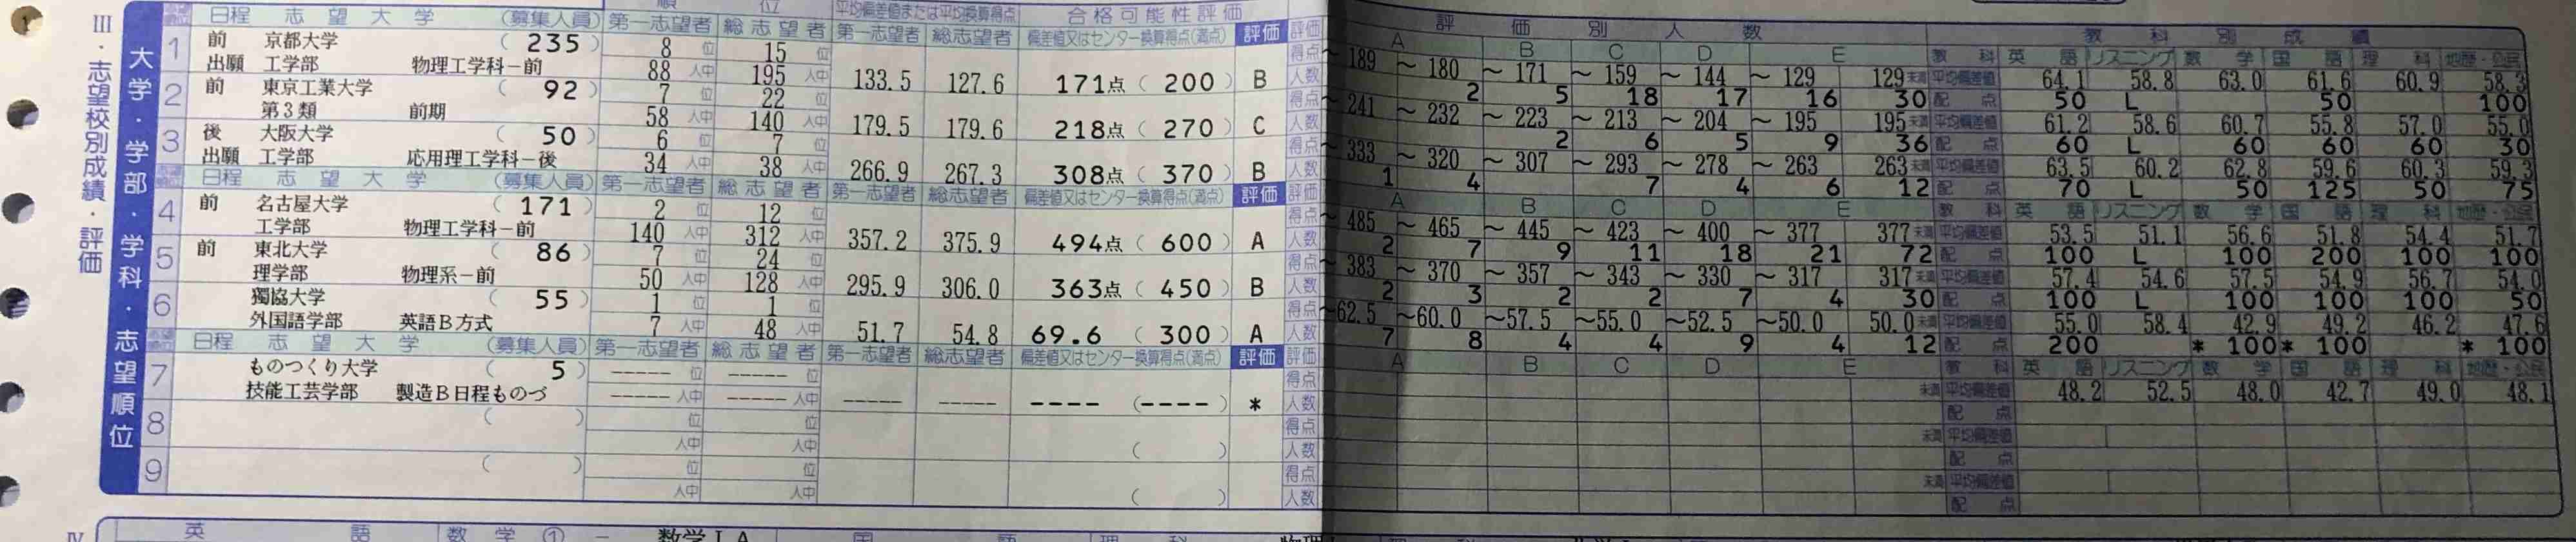 III・志望校別成績・評価
大学・学部・学科・志望順位
日程 志望大学 (募集人員) 第一志望者 総志望者 第一志望者 総志望者 偏差値又はセンター換算得点(満点) 評価 評価
順位 平均偏差値または平均換算得点 合格可能性評価
評価別人数 教科別成績
A B C D E 教科 英語 リスニング 数学 国語 理科 地歴・公民
1 前 京都大学 (235) 8位 15位 得点 ~189 ~180 ~171 ~159 ~144 ~129 129未満 平均偏差値 64.1 58.8 63.0 61.6 60.9 58.3
出願 工学部 物理工学科-前 88人中 195人中 133.5 127.6 171点(200) B 人数 2 5 18 17 16 30 配点 50 L 50 100
2 前 東京工業大学 (92) 7位 22位 得点 ~241 ~232 ~223 ~213 ~204 ~195 195未満 平均偏差値 61.2 58.6 60.7 55.8 57.0 55.0
第3類 前期 58人中 140人中 179.5 179.6 218点(270) C 人数 2 6 5 9 36 配点 60 L 60 60 60 30
3 後 大阪大学 (50) 6位 7位 得点 ~333 ~320 ~307 ~293 ~278 ~263 263未満 平均偏差値 63.5 60.2 62.8 59.6 60.3 59.3
出願 工学部 応用理工学科-後 34人中 38人中 266.9 267.3 308点(370) B 人数 1 4 7 4 6 12 配点 70 L 50 125 50 75
日程 志望大学 (募集人員) 第一志望者 総志望者 第一志望者 総志望者 偏差値又はセンター換算得点(満点) 評価 評価 A B C D E 教科 英語 リスニング 数学 国語 理科 地歴・公民
4 前 名古屋大学 (171) 2位 12位 得点 ~485 ~465 ~445 ~423 ~400 ~377 377未満 平均偏差値 53.5 51.1 56.6 51.8 54.4 51.7
工学部 物理工学科-前 140人中 312人中 357.2 375.9 494点(600) A 人数 2 7 9 11 18 21 72 配点 100 L 100 200 100 100
5 前 東北大学 (86) 7位 24位 得点 ~383 ~370 ~357 ~343 ~330 ~317 317未満 平均偏差値 57.4 54.6 57.5 54.9 56.7 54.0
理学部 物理系-前 50人中 128人中 295.9 306.0 363点(450) B 人数 2 3 2 2 7 4 30 配点 100 L 100 100 100 50
6 獨協大学 (55) 1位 1位 得点 ~62.5 ~60.0 ~57.5 ~55.0 ~52.5 ~50.0 50.0未満 平均偏差値 55.0 58.4 42.9 49.2 46.2 47.6
外国語学部 英語B方式 7人中 48人中 51.7 54.8 69.6 (300) A 人数 7 8 4 4 9 4 12 配点 200 *100 *100 *100
日程 志望大学 (募集人員) 第一志望者 総志望者 第一志望者 総志望者 偏差値又はセンター換算得点(満点) 評価 評価 A B C D E 教科 英語 リスニング 数学 国語 理科 地歴・公民
7 ものつくり大学 (5) -----位 -----位 得点 未満 平均偏差値 48.2 52.5 48.0 42.7 49.0 48.1
技能工芸学部 製造B日程ものづ -----人中 -----人中 ----- ----- ---- (----) * 人数 配点
8 ( ) 位 位 得点 未満 平均偏差値
人中 人中 ( ) 人数 配点
9 ( ) 位 位 得点 未満 平均偏差値
人中 人中 ( ) 人数 配点
IV 英語 数学① - 数学ⅠA 国語 理科